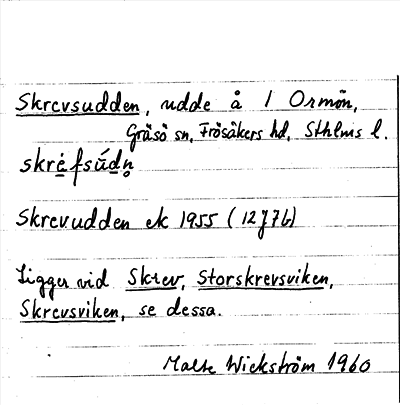 Skrevsudden, udde å 1 Ormön,
Gräsö sn, Frösåkers hd, Sthlms l.
skrėfsúdn̥
Skrevudden ek 1955 (12J7b)
Ligger vid Skrev, Storskrevsviken,
Skrevsviken, se dessa.
Malte Wickström 1960